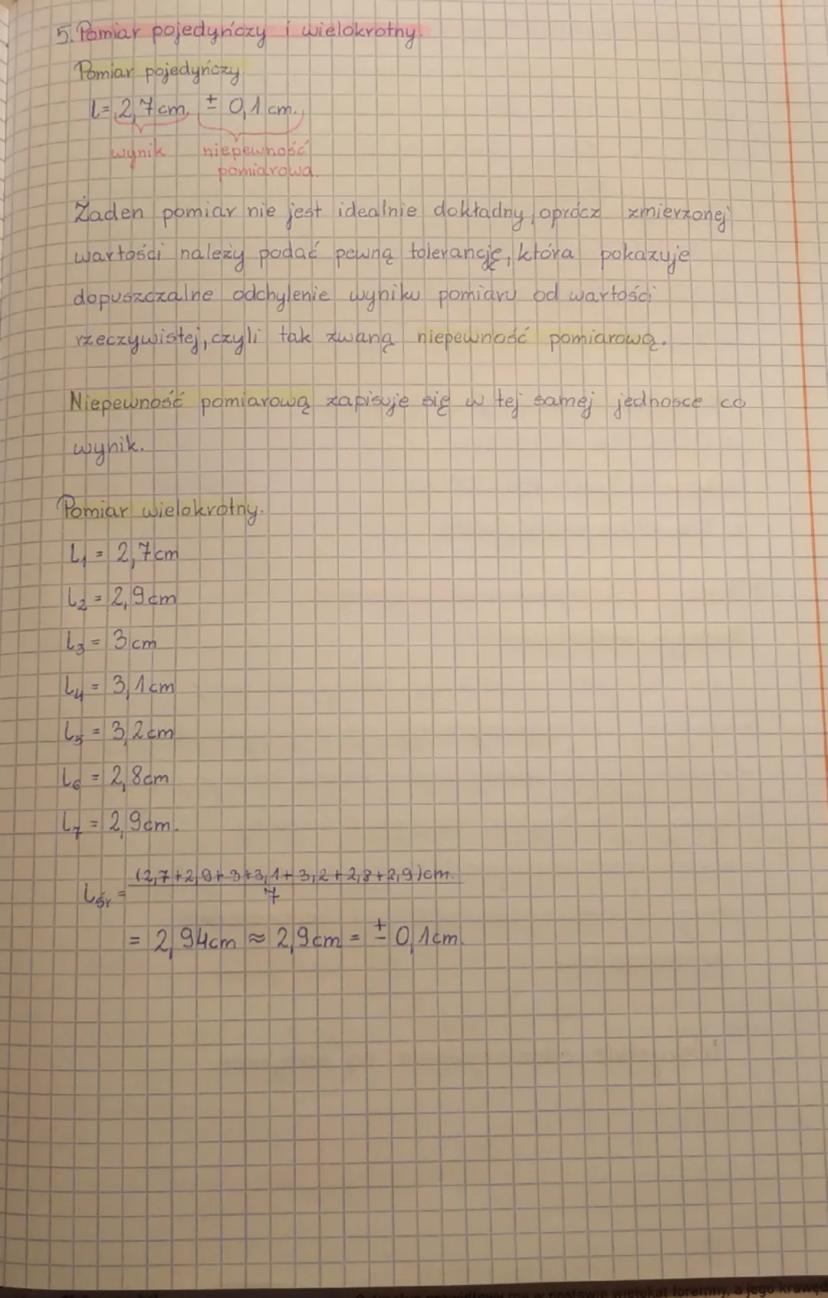 5. Pomiar pojedyńczy i wielokrotny.
Pomiar pojedyńczy
l = 2,7cm ± 0,1 cm.
wynik niepewność
pomiarowa.
Żaden pomiar nie jest idealnie dokładny, oprócz zmierzonej
wartości należy podać pewną tolerancję, która pokazuje
dopuszczalne odchylenie wyniku pomiaru od wartości
rzeczywistej, czyli tak zwaną niepewność pomiarową.
Niepewność pomiarową zapisuje się w tej samej jednosce co
wynik.
Pomiar wielokrotny.
L₁ = 2,7cm
L₂ = 2,9cm
L₃ = 3cm
L₄ = 3,1cm
L₅ = 3,2cm
L₆ = 2,8cm
L₇ = 2,9cm.
(2,7+2,9+3+3,1+3,2+2,8+2,9)cm.
Lśr = 7
= 2,94cm ≈ 2,9cm = ± 0,1cm.